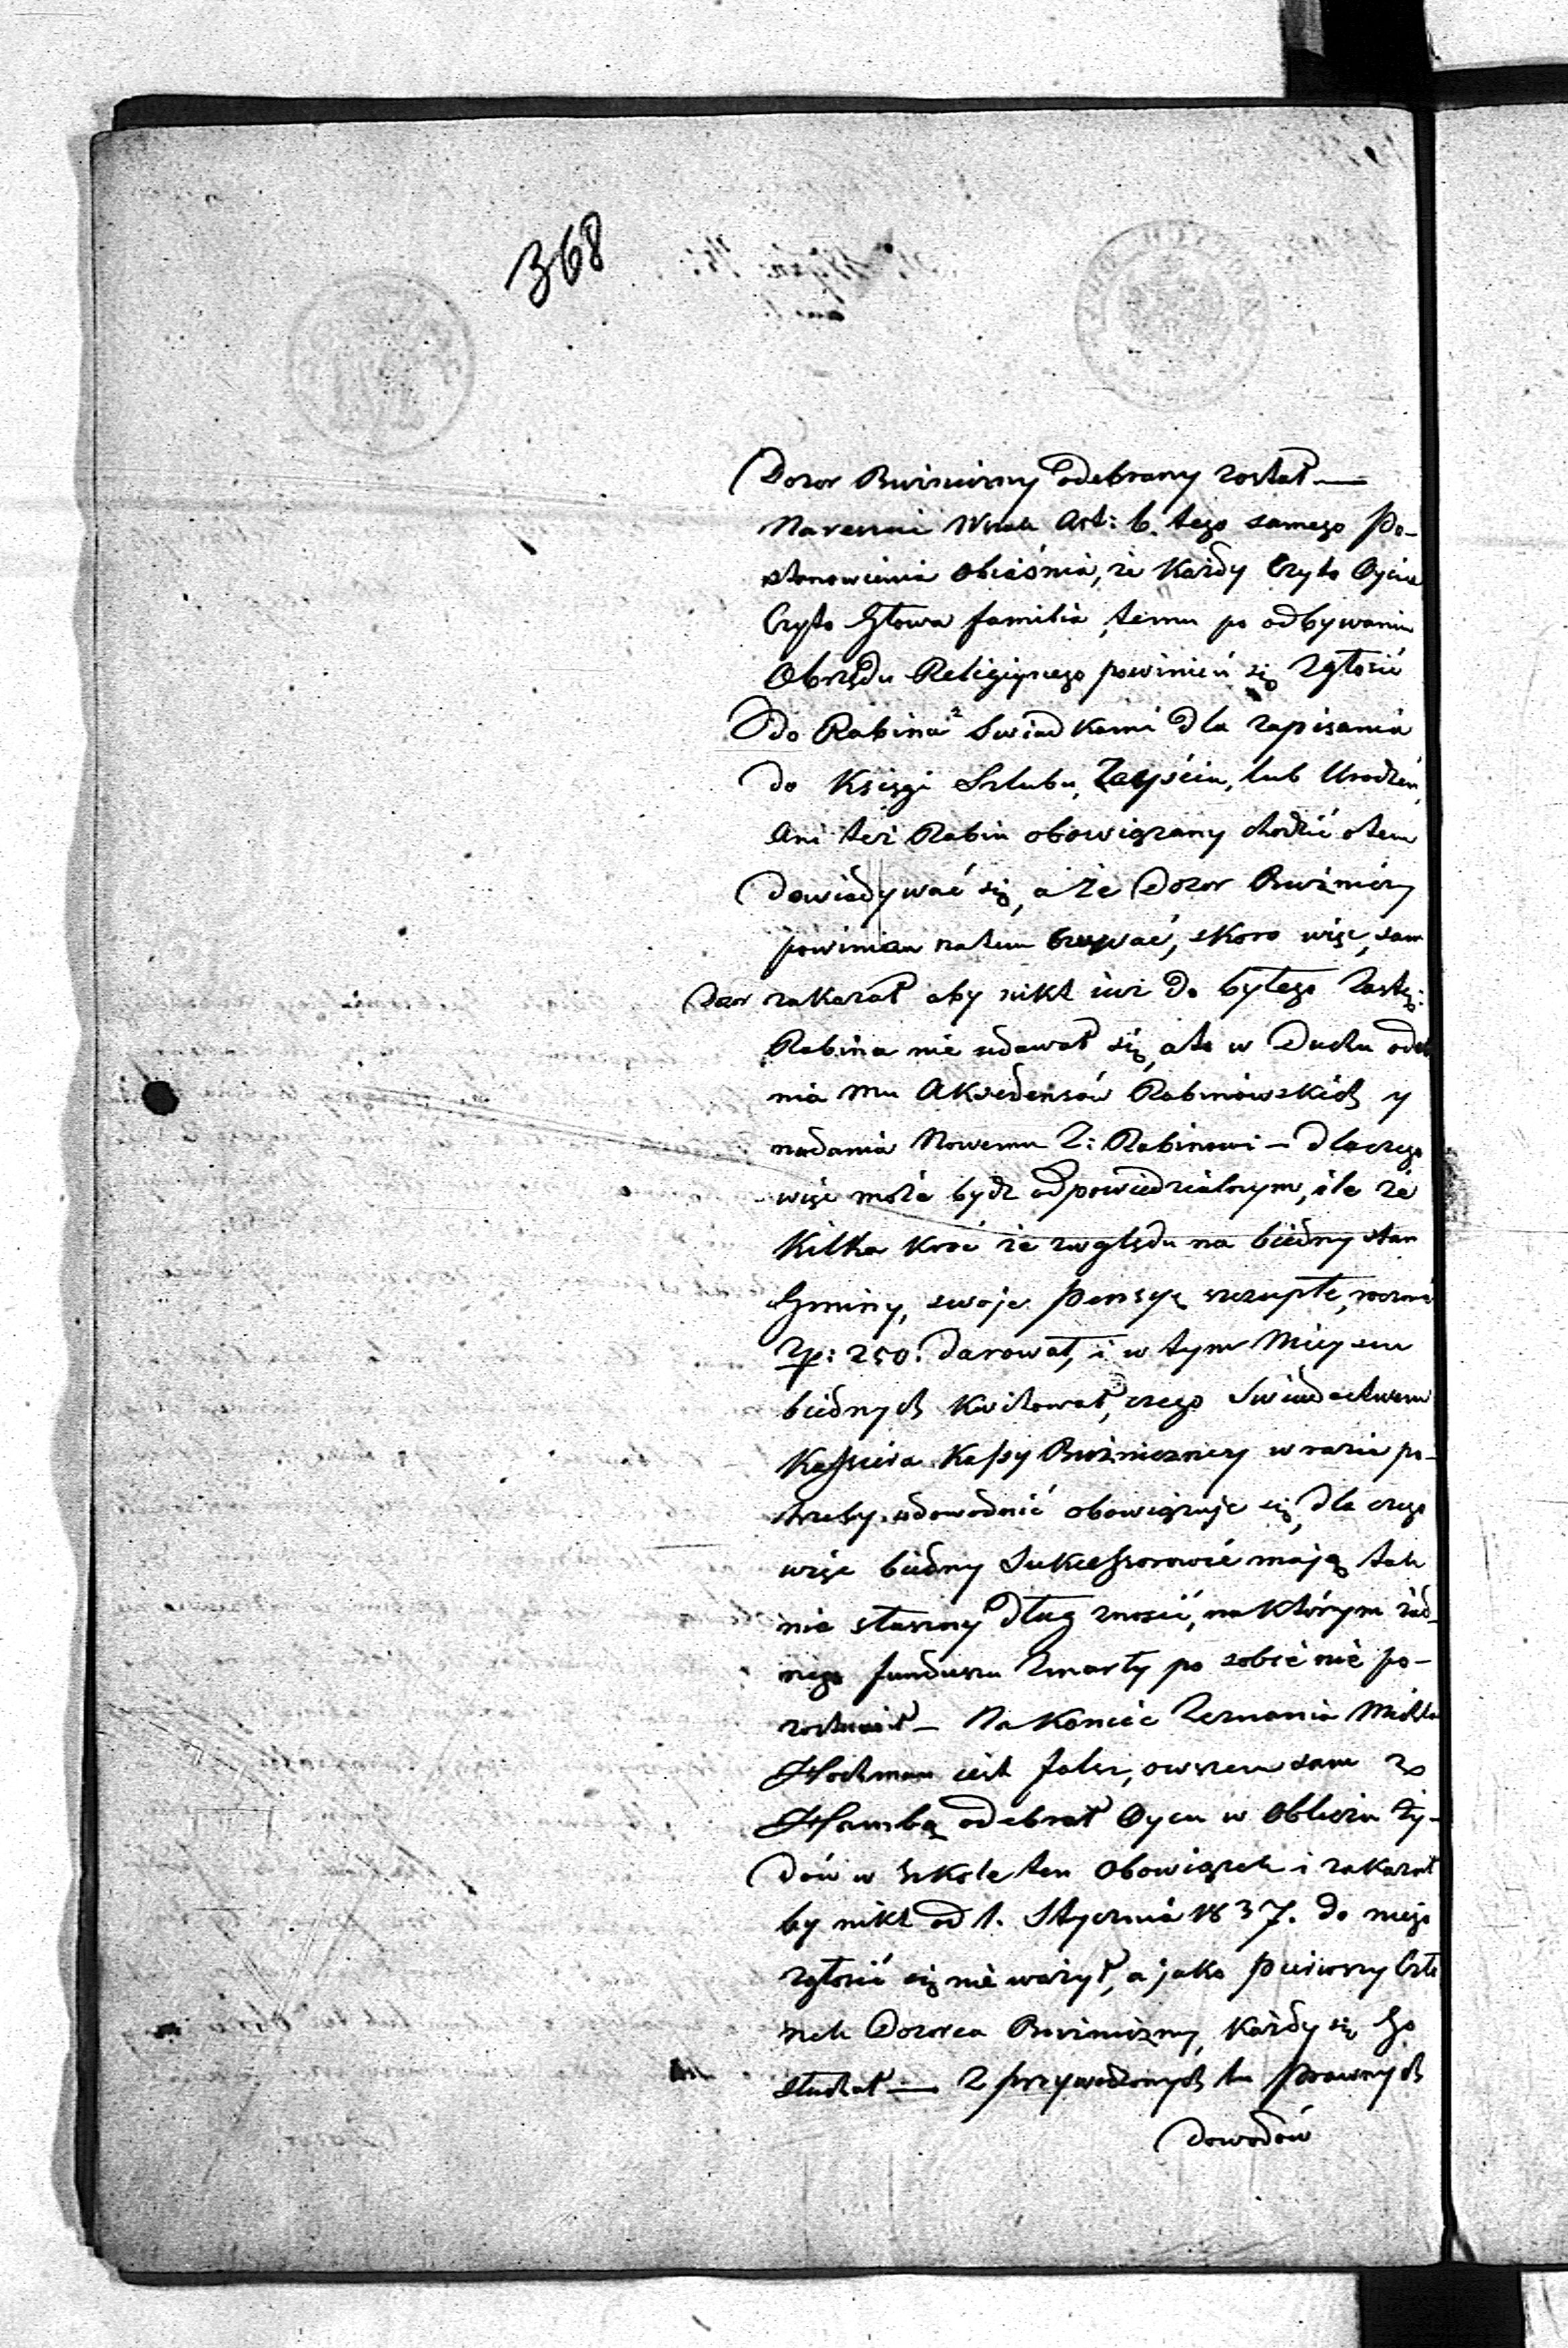 368
Dozor Bużniczny odebrany został —
Nareszcie Wszak Art: 6. tego samego Po-
stonowienia obiaśnia, że Każdy Czyto Oyciec
Czyto Głowa familia, temu po odbywaniu
Obrządu Religijnego powinień się zgłosić
do Rabina z Swiadkami dla zapisania
do Księgi Szlubu, Zeyścia, lub Urodzeń,
Ani też Rabin obowiązany chodzić otem
dowiadywać się, a że Dozor Bużniczny
powinien natem czuwać, skoro więc, sam
Dozor zakazał aby nikt iuż do byłego Zastę:
Rabina nie udawał się, ato w Duchu odebra
nia mu Aksedensów Rabinowskich y
nadania Nowemu Z: Rabinowi — dlaczego
więc może bydz odpowiedzialnym, ile że
Kilka kroć ze względu na biedny stan
Gminy, swoje Pensyę szczupłe, rocznie
Zp: 250. darował, i w tym Mieyscu
biednych kwitował, czego Swiadectwem
Kassiera Kassy Bużniczney w razie po-
trzeby udowodnić obowiązuje się, dla czego
więc biedny Sukcessorowie mają tak
nie słuszny dług znosić, na którym żad-
nego funduszu Zmarły po sobie nie po-
zostawił — Na koniec Zeznania
Hochman iest falsz, owszem sam ze
Hambą odebrał Oycu w Obliczu Ży-
dów w Szkole ten Obowiązek i zakazał
by nikt od 1. Stycznia 1837. do niego
zgłosić się nie ważył, a jako pierwszy Czło
nek Dozorca Bużniczny, Każdy się Go
słuchał — Z przywodzonych tu Prawnych
dowodów